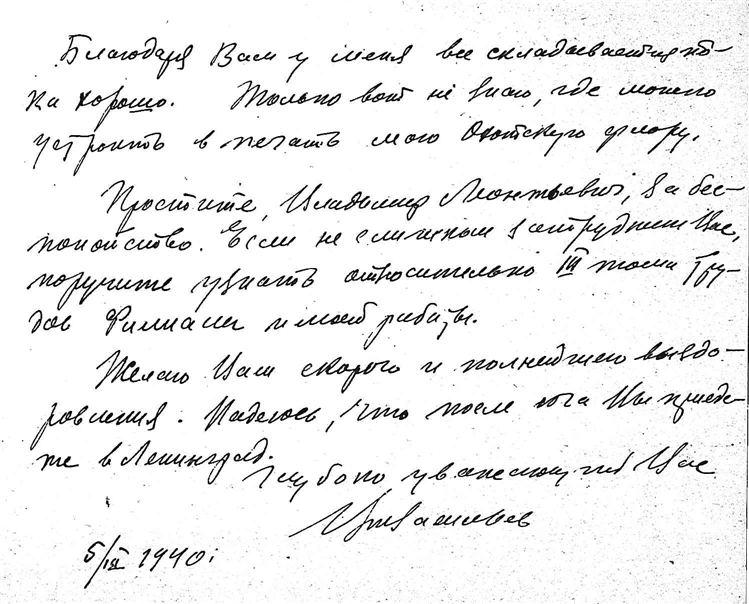 Благодаря Вам у меня все складывается по-
ка хорошо. Только вот не знаю, где можно
устроить в печать мою Охотскую флору.
Простите, Владимир Леонтьевич, за бес-
покойство. Если не слишком затруднит Вас,
поручите узнать относительно III тома Тру-
дов Филиала и моей работы.
Желаю Вам скорого и полнейшего выздо-
ровления. Надеюсь, что после юга Вы приеде-
те в Ленинград.
Глубоко уважающий Вас
5/IX 1940.